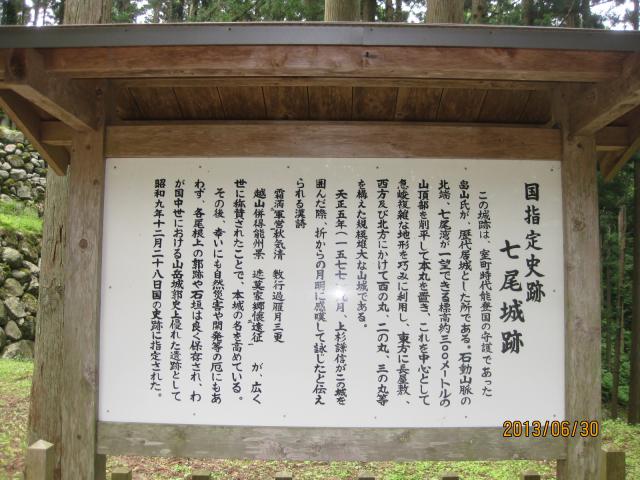 国指定史跡
七尾城跡
この城跡は、室町時代能登国の守護であった
畠山氏が、歴代居城とした所である。石動山脈の
北端、七尾湾が一望できる標高約三〇〇メートルの
山頂部を削平して本丸を置き、これを中心として
急峻複雑な地形を巧みに利用し、東方に長屋敷、
西方及び北方にかけて西の丸、二の丸、三の丸等
を構えた規模雄大な山城である。
天正五年(一五七七)九月、上杉謙信がこの城を
囲んだ際、折からの月明に感嘆して詠じたと伝え
られる漢詩
霜満軍営秋気清 数行過雁月三更
越山併得能州景 遮莫家郷懐遠征 が、広く
世に称賛されたことで、本城の名を高めている。
その後、幸いにも自然災害や開発等の厄にもあ
わず、各尾根上の郭跡や石垣は良く保存され、わ
が国中世における山岳城郭史上優れた遺跡として
昭和九年十二月二十八日国の史跡に指定された。
2013/06/30